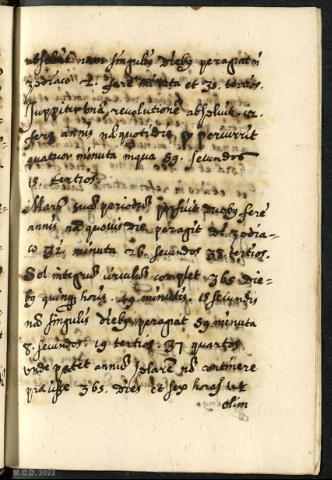 absoluit nam singulis dieby peragat in
zodiaco 2. fere minuta et 30. tertios.
Iuppiter unā revolutionē absoluit 12.
fere annis nā quotidie percurrit
quatuor minuta 59. secundos
tertios
Mars suā periodum duoby fere
annis nā quovis die peragit de zodia-
co 31 minuta 26. secundos 38. tertios.
Sol integrū circulum complet 365 die-
by quinq horis. 49 minutis. 15 secundis
nā singulis dieby peragat 59 minuta
8. secundos. 19 tertios. 37 quartos
unde patet annū solarē nō continere
praecise 365. dies et sex horas ut
olim
M.C.D. 2022